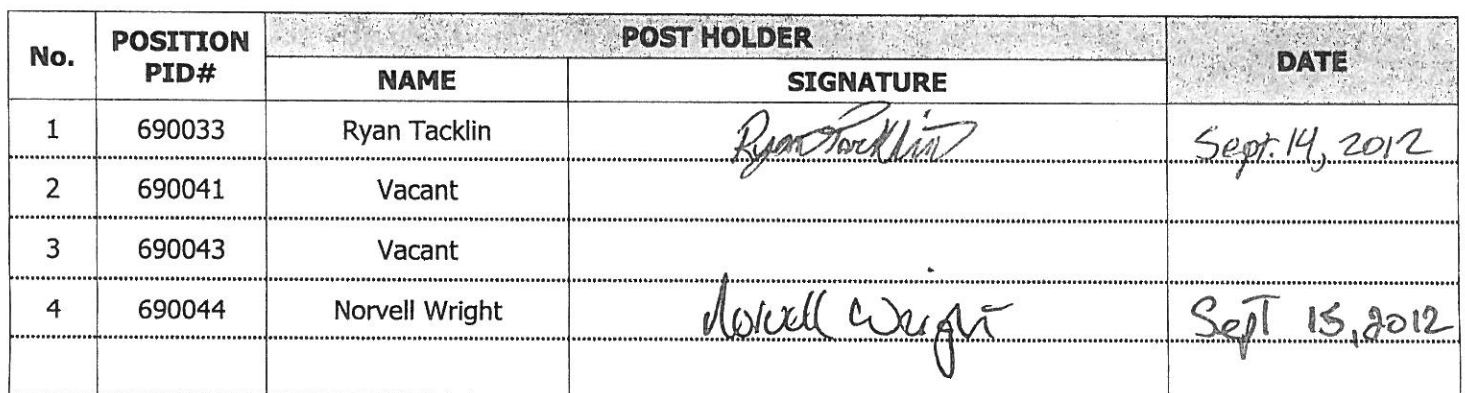 No. POSITION PID# POST HOLDER DATE
NAME SIGNATURE
1 690033 Ryan Tacklin Ryan Tacklin Sept. 14, 2012
2 690041 Vacant
3 690043 Vacant
4 690044 Norvell Wright Norvell Wright Sept 15, 2012